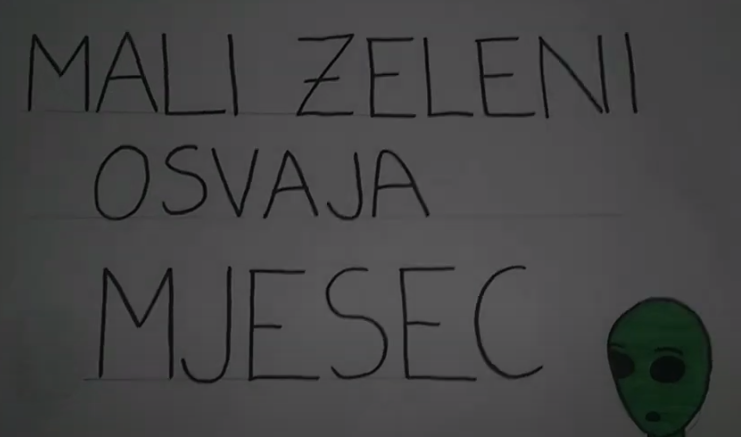 MALI ZELENI
OSVAJA
MJESEC